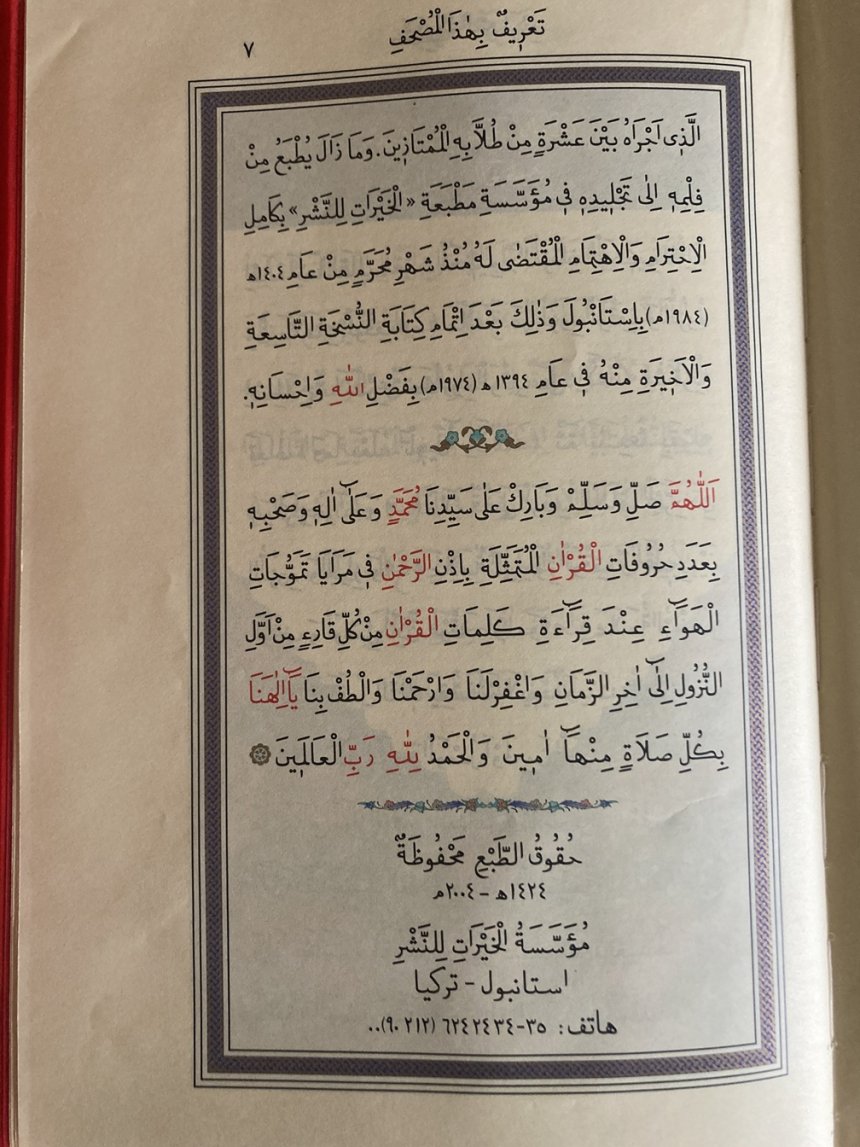 تَعْرِيفٌ بِهٰذَا الْمُصْحَفِ
٧
الَّذِى اَجْرَاهُ بَيْنَ عَشْرَةٍ مِنْ طُلَّابِهِ الْمُمْتَازِينَ. وَمَا زَالَ يُطْبَعُ مِنْ
فِلْمِهِ اِلٰى تَجْلِيدِهِ فِى مُؤَسَّسَةِ مَطْبَعَةِ «الْخَيْرَاتِ لِلنَّشْرِ» بِكَامِلِ
الْاِحْتِرَامِ وَالْاِهْتِمَامِ الْمُقْتَضٰى لَهُ مُنْذُ شَهْرِ مُحَرَّمٍ مِنْ عَامِ ١٤٠٤ه
(١٩٨٤م) بِاِسْتَانْبُولَ وَذٰلِكَ بَعْدَ اِتْمَامِ كِتَابَةِ النُّسْخَةِ التَّاسِعَةِ
وَالْاَخِيرَةِ مِنْهُ فِى عَامِ ١٣٩٤ ه (١٩٧٤م) بِفَضْلِ اللّٰهِ وَاِحْسَانِهِ.
اَللّٰهُمَّ صَلِّ وَسَلِّمْ وَبَارِكْ عَلٰى سَيِّدِنَا مُحَمَّدٍ وَعَلٰٓى اٰلِهِ وَصَحْبِهِ
بِعَدَدِ حُرُوفَاتِ الْقُرْاٰنِ الْمُتَمَثِّلَةِ بِاِذْنِ الرَّحْمٰنِ فِى مَرَايَا تَمَوُّجَاتِ
الْهَوَٓاءِ عِنْدَ قِرَٓاءَةِ كَلِمَاتِ الْقُرْاٰنِ مِنْ كُلِّ قَارِءٍ مِنْ اَوَّلِ
النُّزُولِ اِلٰٓى اٰخِرِ الزَّمَانِ وَاغْفِرْلَنَا وَارْحَمْنَا وَالْطُفْ بِنَا يَٓا اِلٰهَنَا
بِكُلِّ صَلَاةٍ مِنْهَٓا اٰمِينَ وَالْحَمْدُ لِلّٰهِ رَبِّ الْعَالَمِينَ
حُقُوقُ الطَّبْعِ مَحْفُوظَةٌ
١٤٢٤ه – ٢٠٠٤م
مُؤَسَّسَةُ الْخَيْرَاتِ لِلنَّشْرِ
استانبول - تركيا
هاتف: ٣٥-٦٢٤٢٤٣٤ (٢١٢ ٩٠)..